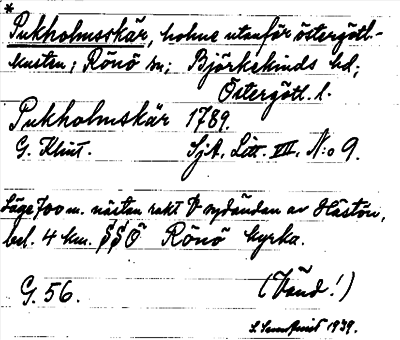 *
Pukholmsskär, holme utanför östergötl-
kusten; Rönö sn; Björkekinds hd;
Östergötl. l.
Pukholmskär 1789.
G. Klint. SjA, Litt. VIII, N:o 9.
Läge 700 m. nästan rakt V sydändan av Hästön,
bel. 4 km. SSO Rönö kyrka.
G. 56. (Vänd!)
1939.